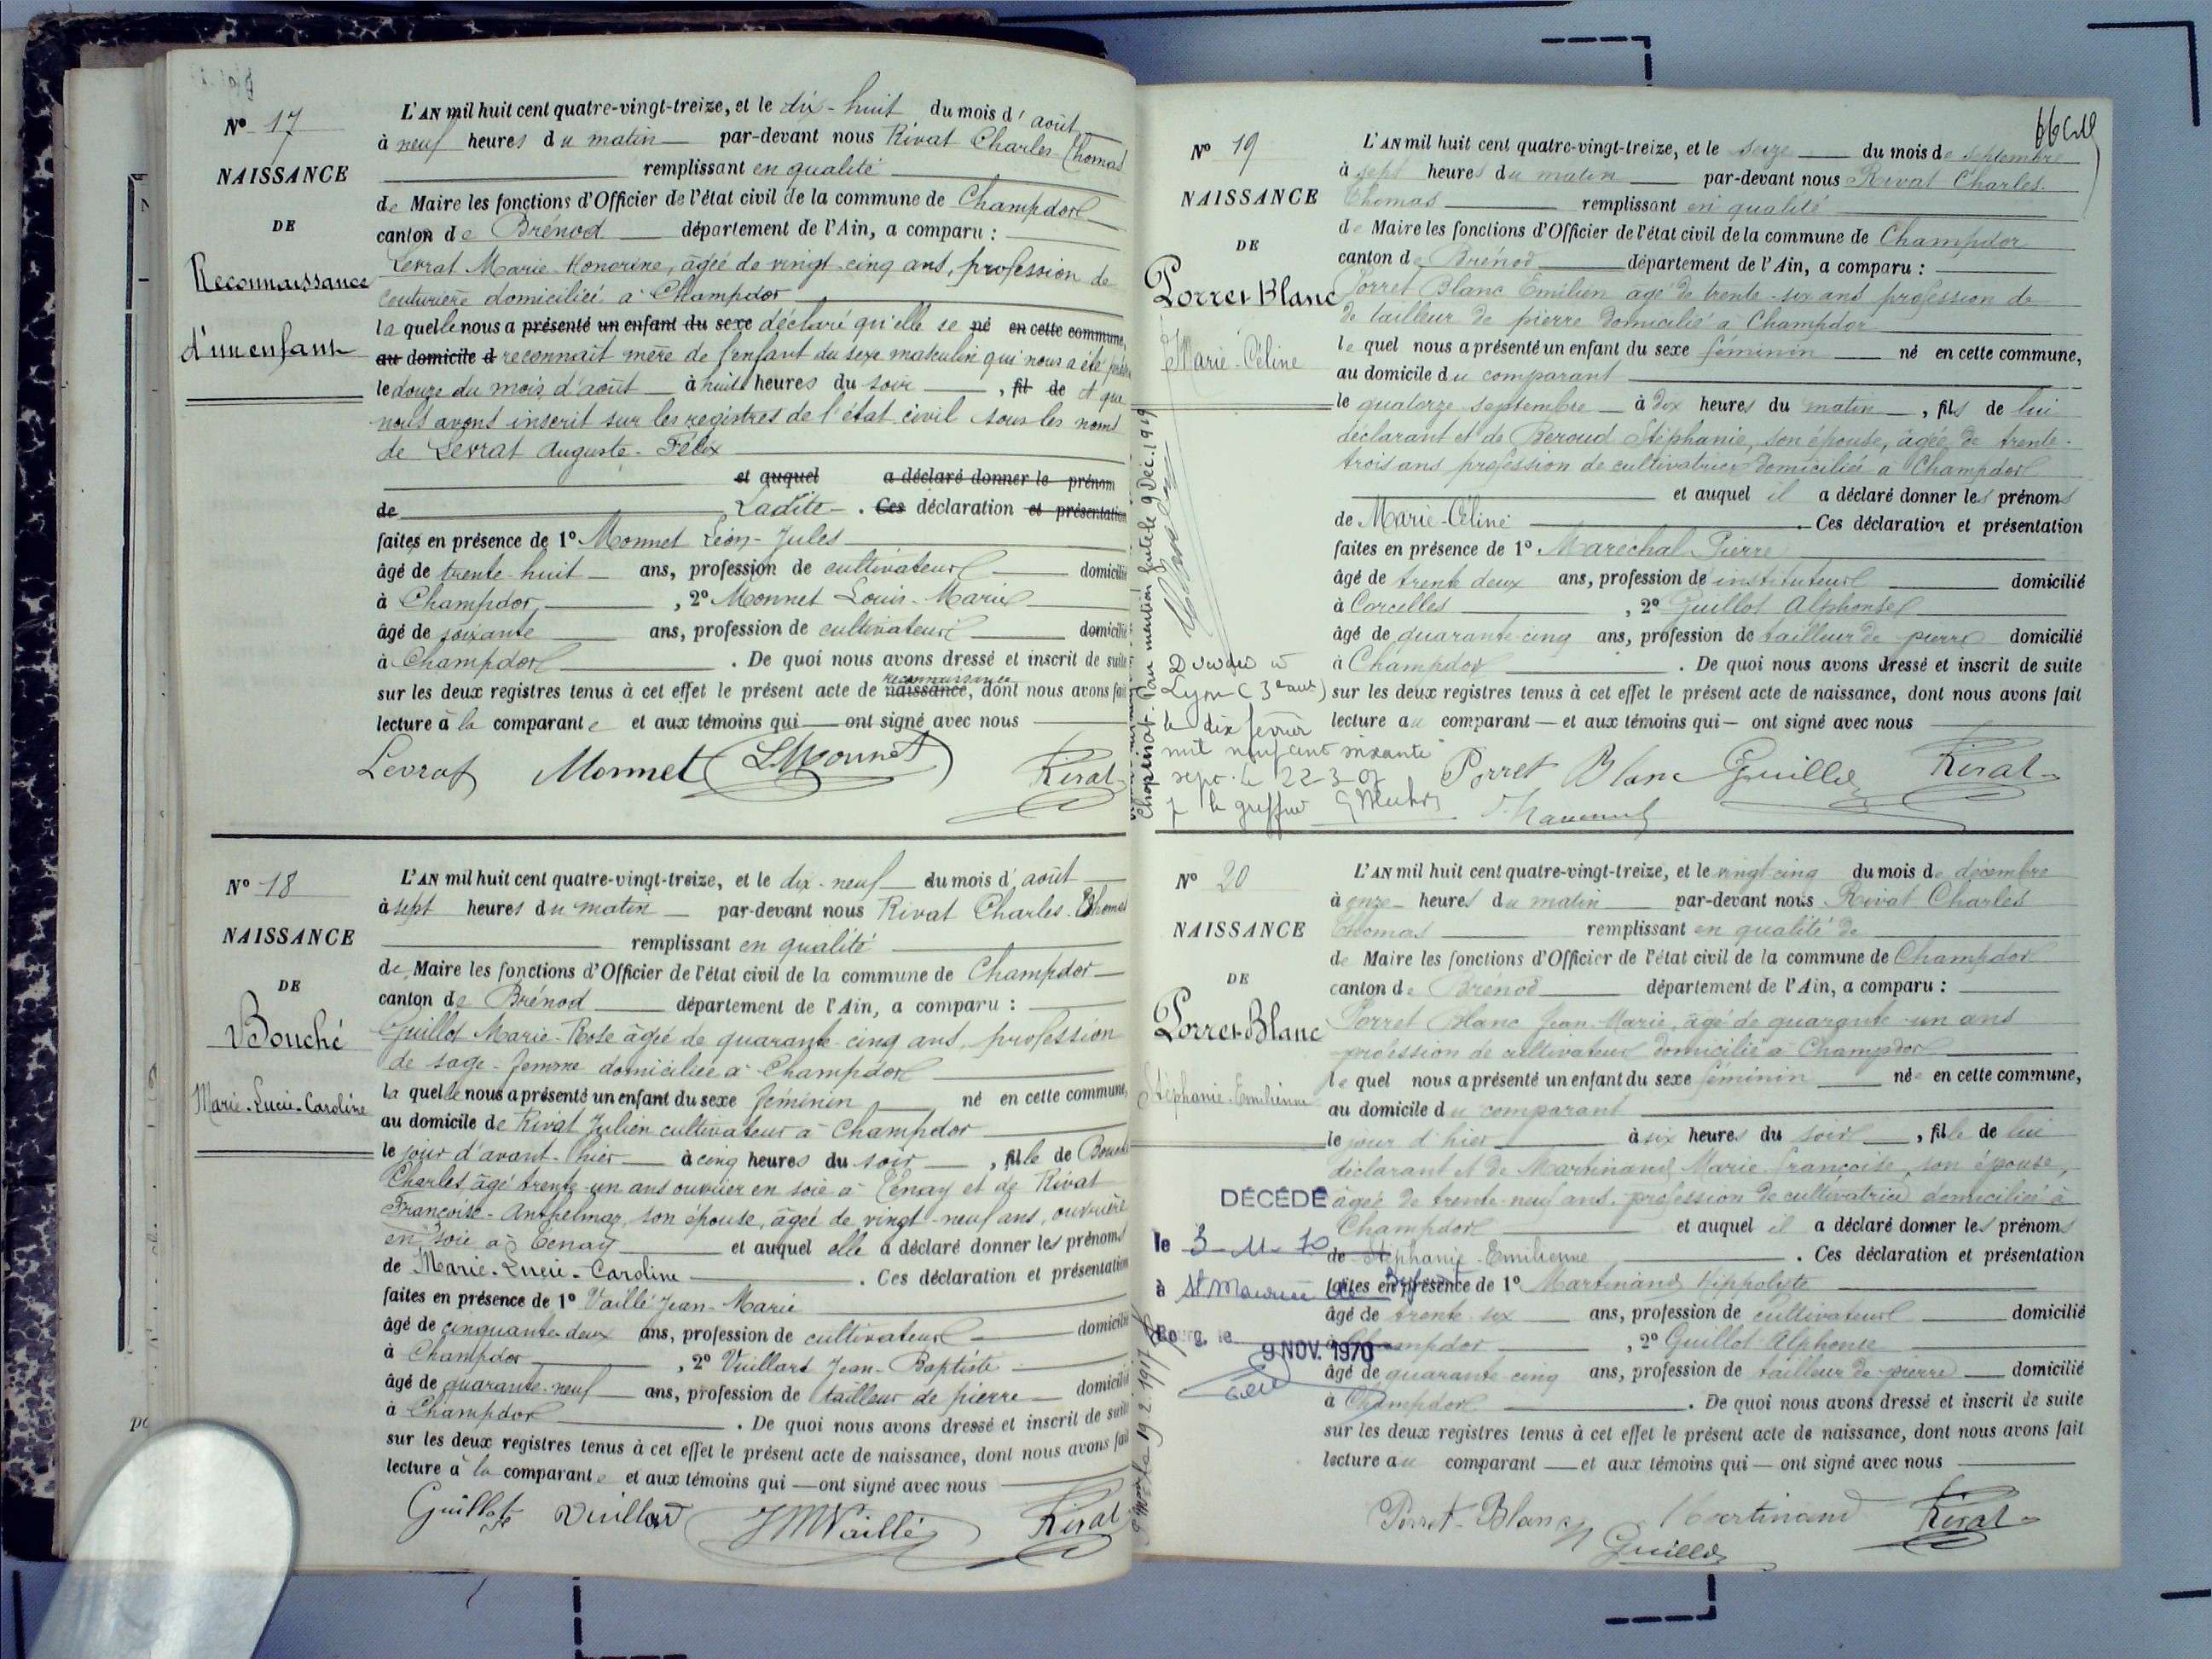 Nº 17
NAISSANCE
DE
Reconnaissance
d'un enfant
L'AN mil huit cent quatre-vingt-treize, et le dix-huit du mois d'août
à neuf heures du matin par-devant nous Rivat Charles Thomas
remplissant en qualité
de Maire les fonctions d'Officier de l'état civil de la commune de Champdor
canton de Brénod département de l'Ain, a comparu :
Levrat Marie Honorine, âgée de vingt-cinq ans, profession de
couturière domiciliée à Champdor
laquelle nous a présenté un enfant du sexe déclaré qu'elle se né en cette commune,
au domicile d reconnait mère de l'enfant du sexe masculin qui nous a été
le douze du mois d'août à huit heures du soir , fil de et que
nous avons inscrit sur les registres de l'état civil sous les noms
de Levrat Auguste-Félix
et auquel a déclaré donner le prénom
de Ladite . Ces déclaration et présentation
faites en présence de 1º Monnet Léon-Jules
âgé de trente-huit ans, profession de cultivateur domicilié
à Champdor, , 2º Monnet Louis-Marie
âgé de soixante ans, profession de cultivateur domicilié
à Champdor . De quoi nous avons dressé et inscrit de suite
reconnaissance
sur les deux registres tenus à cet effet le présent acte de naissance, dont nous avons fait
lecture à la comparante et aux témoins qui ont signé avec nous
Levrat Monnet L Monnet Rivat
Nº 18
NAISSANCE
DE
Bouché
Marie-Lucie-Caroline
L'AN mil huit cent quatre-vingt-treize, et le dix-neuf du mois d'août
à sept heures du matin par-devant nous Rivat Charles-Thomas
remplissant en qualité
de Maire les fonctions d'Officier de l'état civil de la commune de Champdor
canton de Brénod département de l'Ain, a comparu :
Guillot Marie-Rose âgée de quarante-cinq ans, profession
de sage-femme domiciliée à Champdor
laquelle nous a présenté un enfant du sexe féminin né en cette commune,
au domicile de Rivat Julien cultivateur à Champdor
le jour d'avant-hier à cinq heures du soir , fille de Bouché
Charles, âgé trente-un ans ouvrier en soie à Tenay et de Rivat
Françoise-Anthelmaz, son épouse, âgée de vingt-neuf ans, ouvrière
en soie à Tenay et auquel elle a déclaré donner les prénoms
de Marie-Lucie-Caroline . Ces déclaration et présentation
faites en présence de 1º Vaillé Jean-Marie
âgé de cinquante-deux ans, profession de cultivateur domicilié
à Champdor , 2º Vuillard Jean-Baptiste
âgé de quarante-neuf ans, profession de tailleur de pierre domicilié
à Champdor . De quoi nous avons dressé et inscrit de suite
sur les deux registres tenus à cet effet le présent acte de naissance, dont nous avons fait
lecture à la comparante et aux témoins qui ont signé avec nous
Guillot Vuillard JM Vaillé Rivat
Nº 19
NAISSANCE
DE
Porret Blanc
Marie-Céline
Chopinat. Pour mention faite le 9 Déc. 1919
Lyon (3e
le dix février
mil neuf cent soixante
sept. le 22-3-67
le greffier
L'AN mil huit cent quatre-vingt-treize, et le seize du mois de septembre
à sept heures du matin par-devant nous Rivat Charles
Thomas remplissant en qualité
de Maire les fonctions d'Officier de l'état civil de la commune de Champdor
canton de Brénod département de l'Ain, a comparu :
Porret Blanc Emilien âgé de trente-six ans profession de
de tailleur de pierre domicilié à Champdor
lequel nous a présenté un enfant du sexe féminin né en cette commune,
au domicile du comparant
le quatorze septembre à dix heures du matin , fils de lui
déclarant et de Beroud Stéphanie, son épouse, âgée de trente-
trois ans profession de cultivatrice domiciliée à Champdor
et auquel il a déclaré donner les prénoms
de Marie-Céline . Ces déclaration et présentation
faites en présence de 1º Maréchal Pierre
âgé de trente deux ans, profession de instituteur domicilié
à Corcelles , 2º Guillot Alphonse
âgé de quarante-cinq ans, profession de tailleur de pierre domicilié
à Champdor . De quoi nous avons dressé et inscrit de suite
sur les deux registres tenus à cet effet le présent acte de naissance, dont nous avons fait
lecture au comparant et aux témoins qui ont signé avec nous
Porret Blanc Guillot Rivat
Nº 20
NAISSANCE
DE
Porret-Blanc
Stéphanie-Emilienne
DÉCÉDÉ
le 3-11-70
à St Maurice de
Bourg, le
9 NOV. 1970
L'AN mil huit cent quatre-vingt-treize, et le vingt cinq du mois de décembre
à onze heures du matin par-devant nous Rivat Charles
Thomas remplissant en qualité de
de Maire les fonctions d'Officier de l'état civil de la commune de Champdor
canton de Brénod département de l'Ain, a comparu :
Porret Blanc Jean-Marie, âgé de quarante-un ans
profession de cultivateur domicilié à Champdor
lequel nous a présenté un enfant du sexe féminin née en cette commune,
au domicile du comparant
le jour d'hier à six heures du soir , fille de lui
déclarant et de Martinand Marie françoise, son épouse,
âgée de trente-neuf ans. profession de cultivatrice domiciliée à
Champdor et auquel il a déclaré donner les prénoms
de Stéphanie-Emilienne . Ces déclaration et présentation
faites en présence de 1º Martinand Hippolyte
âgé de trente-six ans, profession de cultivateur domicilié
à Champdor , 2º Guillot Alphonse
âgé de quarante-cinq ans, profession de tailleur de pierre domicilié
à Champdor . De quoi nous avons dressé et inscrit de suite
sur les deux registres tenus à cet effet le présent acte de naissance, dont nous avons fait
lecture au comparant et aux témoins qui ont signé avec nous
Porret-Blanc Martinand Rivat
Guillot